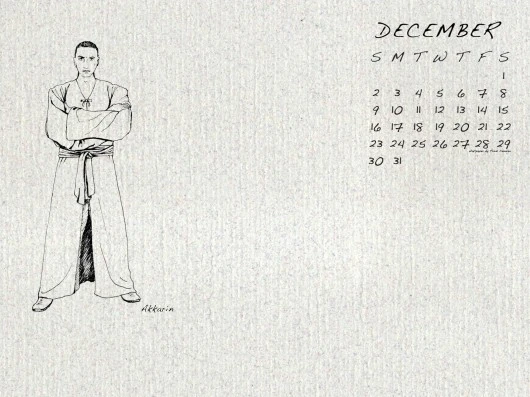 DECEMBER
S M T W T F S
1
2 3 4 5 6 7 8
9 10 11 12 13 14 15
16 17 18 19 20 21 22
23 24 25 26 27 28 29
30 31
Akkarin